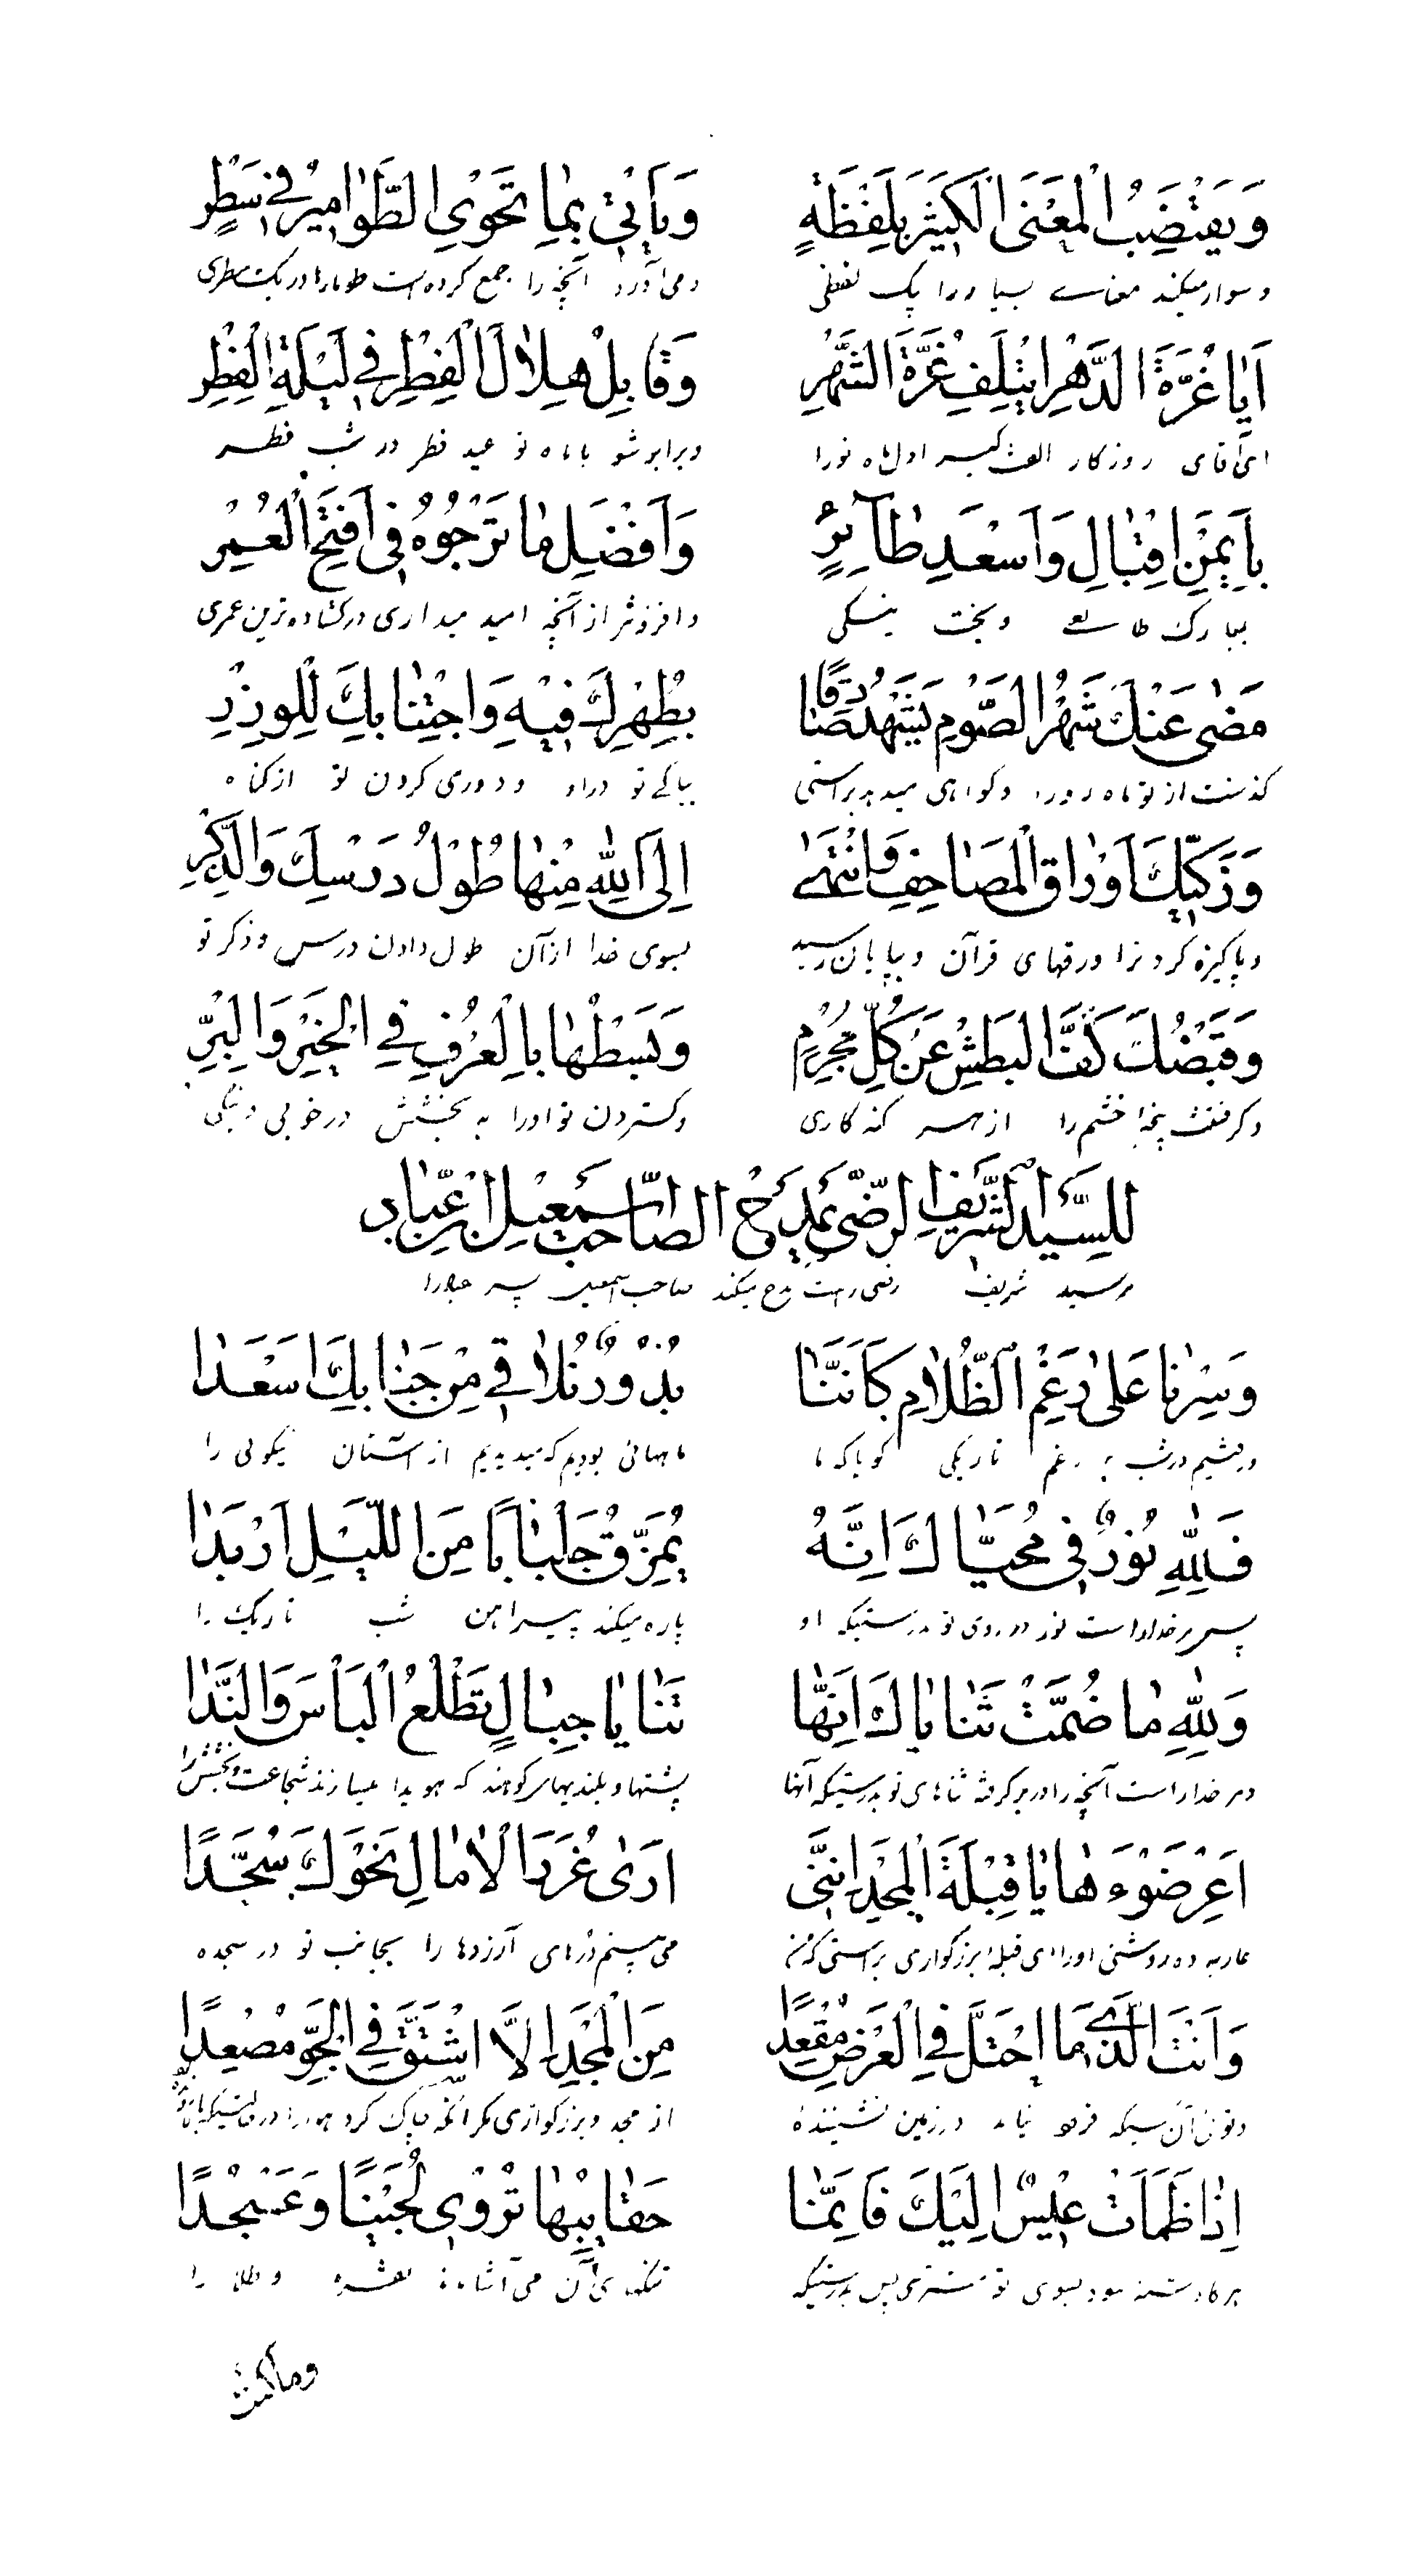 وَيَقْتَضِبُ الْمَعْنَى الْكَثِيرَ بِلَفْظَةٍ وَيَأْتِي بِمَا تَحْوِي الطَّوَامِيرُ فِي سَطْرٍ
و سوار میکند معانی بسیار را بیک لفظی و می‌آورد آنچه را جمع کرده است طومارها در یک سطری
اَيَا غُرَّةَ الدَّهْرِ ائْتَلِفْ غُرَّةَ الشَّهْرِ وَقَابِلْ هِلَالَ الْفِطْرِ فِي لَيْلَةِ الْفِطْرِ
ای آقای روزکار الفت کیر اول ماه نورا و برابر شو با ماه نو عید فطر در شب فطر
بِاَيْمَنِ اِقْبَالٍ وَاَسْعَدِ طَآئِرٍ وَاَفْضَلِ مَا تَرْجُوهُ فِي اَفْسَحِ الْعُمْرِ
بمبارک طالعی و بخت نیکی و افزونتر از آنچه امید میداری در کشاده ترین عمری
مَضَى عَنْكَ شَهْرُ الصَّوْمِ يَشْهَدُ صَادِقًا بِطُهْرِكَ فِيهِ وَاجْتِنَابِكَ لِلْوِزْرِ
کذشت از تو ماه روزه و کواهی میدهد براستی بپاکی تو در او و دوری کردن تو از کناه
وَزَكَّتْكَ اَوْرَاقُ الْمَصَاحِفِ وَانْتَهَى اِلَى اللهِ مِنْهَا طُولُ دَرْسِكَ وَالذِّكْرِ
و پاکیزه کرد ترا ورقهای قرآن و بپایان رسید بسوی خدا از آن طول دادن درس و ذکر تو
وَقَبْضُكَ كَفَّ الْبَطْشِ عَنْ كُلِّ مُجْرِمٍ وَبَسْطُهَا بِالْعُرْفِ فِي الْخَيْرِ وَالْبِرِّ
و کرفتنت پنجهٔ خشم را از هر کنه کاری و کستردن تو اورا به بخشش در خوبی و نیکی
لِلسَّيِّدِ الشَّرِيفِ الرَّضِيِّ يَمْدَحُ الصَّاحِبَ اِسْمَعِيلَ ابْنَ عَبَّادٍ
مر سید شریف رضی راست مدح میکند صاحب اسمعیل پسر عباد را
وَسِرْنَا عَلَى رَغْمِ الظَّلَامِ كَاَنَّنَا بُدُورٌ تُلَاقِي مِنْ جَنَابِكَ اَسْعَدَا
و رفتیم در شب بر رغم تاریکی کویا که ما ماههائی بودیم که میدیدیم از آستان نیکوئی را
فَلِلّٰهِ نُورٌ فِي مُحَيَّاكَ اِنَّهُ يُمَزِّقُ جِلْبَابًا مِنَ اللَّيْلِ اَرْبَدَا
پس مر خدا راست نور در روی تو بدرستیکه او پاره میکند پیراهن شب تاریک را
وَلِلّٰهِ مَا ضُمَّتْ ثَنَايَاكَ اِنَّهَا ثَنَايَا جِبَالٍ تُطْلِعُ الْبَأْسَ وَالنَّدَا
و مر خدا راست آنچه را در بر کرفته ثناهای تو بدرستیکه آنها پشتها و بلندیهای کوهند که هویدا میسازند شجاعت و بخشش را
اَعِرْ ضَوْءَهَا يَا قِبْلَةَ الْمَجْدِ اِنَّنِي اَرَى غُرَرَ الْاٰمَالِ نَحْوَكَ سُجَّدًا
عاریه ده روشنی اورا ای قبلهٔ بزرکواری براستی که من می بینم درهای آرزوها را بجانب تو در سجده
وَاَنْتَ الَّذِي مَا احْتَلَّ فِي الْعَرْضِ مَقْعَدًا مِنَ الْمَجْدِ اِلَّا اشْتَقَّ فِي الْجَوِّ مَصْعَدًا
و توئی آن کسیکه فرود نیامد در زمین از مجد و بزرکواری مکر آنکه چاک کرد هوا را
اِذَا ظَمِأَتْ عِيسٌ اِلَيْكَ فَاِنَّمَا حَقَايِبُهَا تُرْوَى لُجَيْنًا وَعَسْجَدًا
هر کاه تشنه شود بسوی تو شتری پس بدرستیکه نقره و طلا را
وما کنت